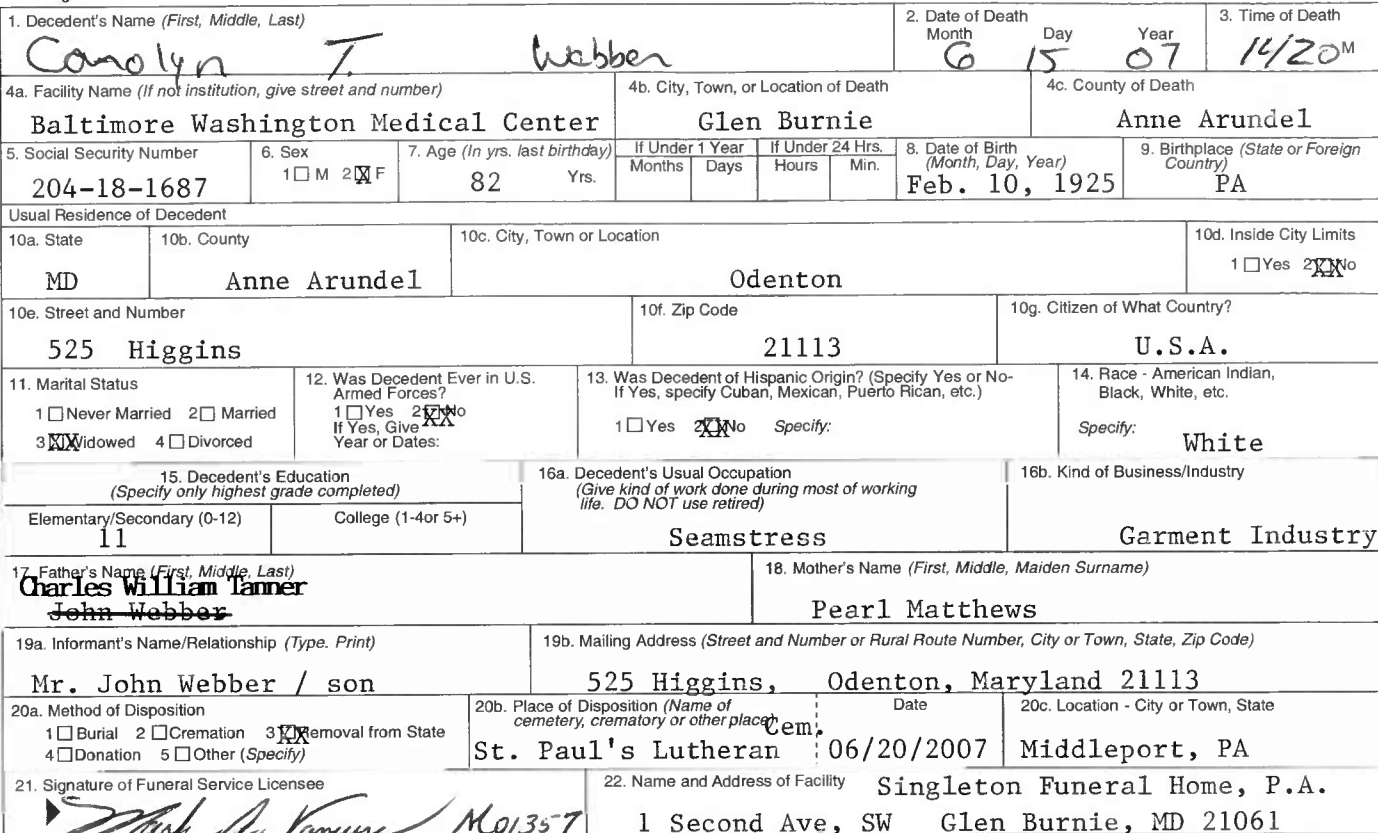 1. Decedent's Name (First, Middle, Last)
Carolyn T. Webber
2. Date of Death
Month Day Year
6 15 07
3. Time of Death
1420 M
4a. Facility Name (If not institution, give street and number)
Baltimore Washington Medical Center
4b. City, Town, or Location of Death
Glen Burnie
4c. County of Death
Anne Arundel
5. Social Security Number
204-18-1687
6. Sex
1 ☐ M 2 ☒ F
7. Age (In yrs. last birthday)
82 Yrs.
If Under 1 Year
Months Days
If Under 24 Hrs.
Hours Min.
8. Date of Birth
(Month, Day, Year)
Feb. 10, 1925
9. Birthplace (State or Foreign
Country)
PA
Usual Residence of Decedent
10a. State
MD
10b. County
Anne Arundel
10c. City, Town or Location
Odenton
10d. Inside City Limits
1 ☐ Yes 2 ☒ No
10e. Street and Number
525 Higgins
10f. Zip Code
21113
10g. Citizen of What Country?
U.S.A.
11. Marital Status
1 ☐ Never Married 2 ☐ Married
3 ☒ Widowed 4 ☐ Divorced
12. Was Decedent Ever in U.S.
Armed Forces?
1 ☐ Yes 2 ☒ No
If Yes, Give
Year or Dates:
13. Was Decedent of Hispanic Origin? (Specify Yes or No-
If Yes, specify Cuban, Mexican, Puerto Rican, etc.)
1 ☐ Yes 2 ☒ No Specify:
14. Race - American Indian,
Black, White, etc.
Specify:
White
15. Decedent's Education
(Specify only highest grade completed)
Elementary/Secondary (0-12)
11
College (1-4or 5+)
16a. Decedent's Usual Occupation
(Give kind of work done during most of working
life. DO NOT use retired)
Seamstress
16b. Kind of Business/Industry
Garment Industry
17. Father's Name (First, Middle, Last)
Charles William Tanner
John Webber
18. Mother's Name (First, Middle, Maiden Surname)
Pearl Matthews
19a. Informant's Name/Relationship (Type. Print)
Mr. John Webber / son
19b. Mailing Address (Street and Number or Rural Route Number, City or Town, State, Zip Code)
525 Higgins, Odenton, Maryland 21113
20a. Method of Disposition
1 ☐ Burial 2 ☐ Cremation 3 ☒ Removal from State
4 ☐ Donation 5 ☐ Other (Specify)
20b. Place of Disposition (Name of
cemetery, crematory or other place)
Cem.
St. Paul's Lutheran
Date
06/20/2007
20c. Location - City or Town, State
Middleport, PA
21. Signature of Funeral Service Licensee
M01357
22. Name and Address of Facility
Singleton Funeral Home, P.A.
1 Second Ave, SW Glen Burnie, MD 21061